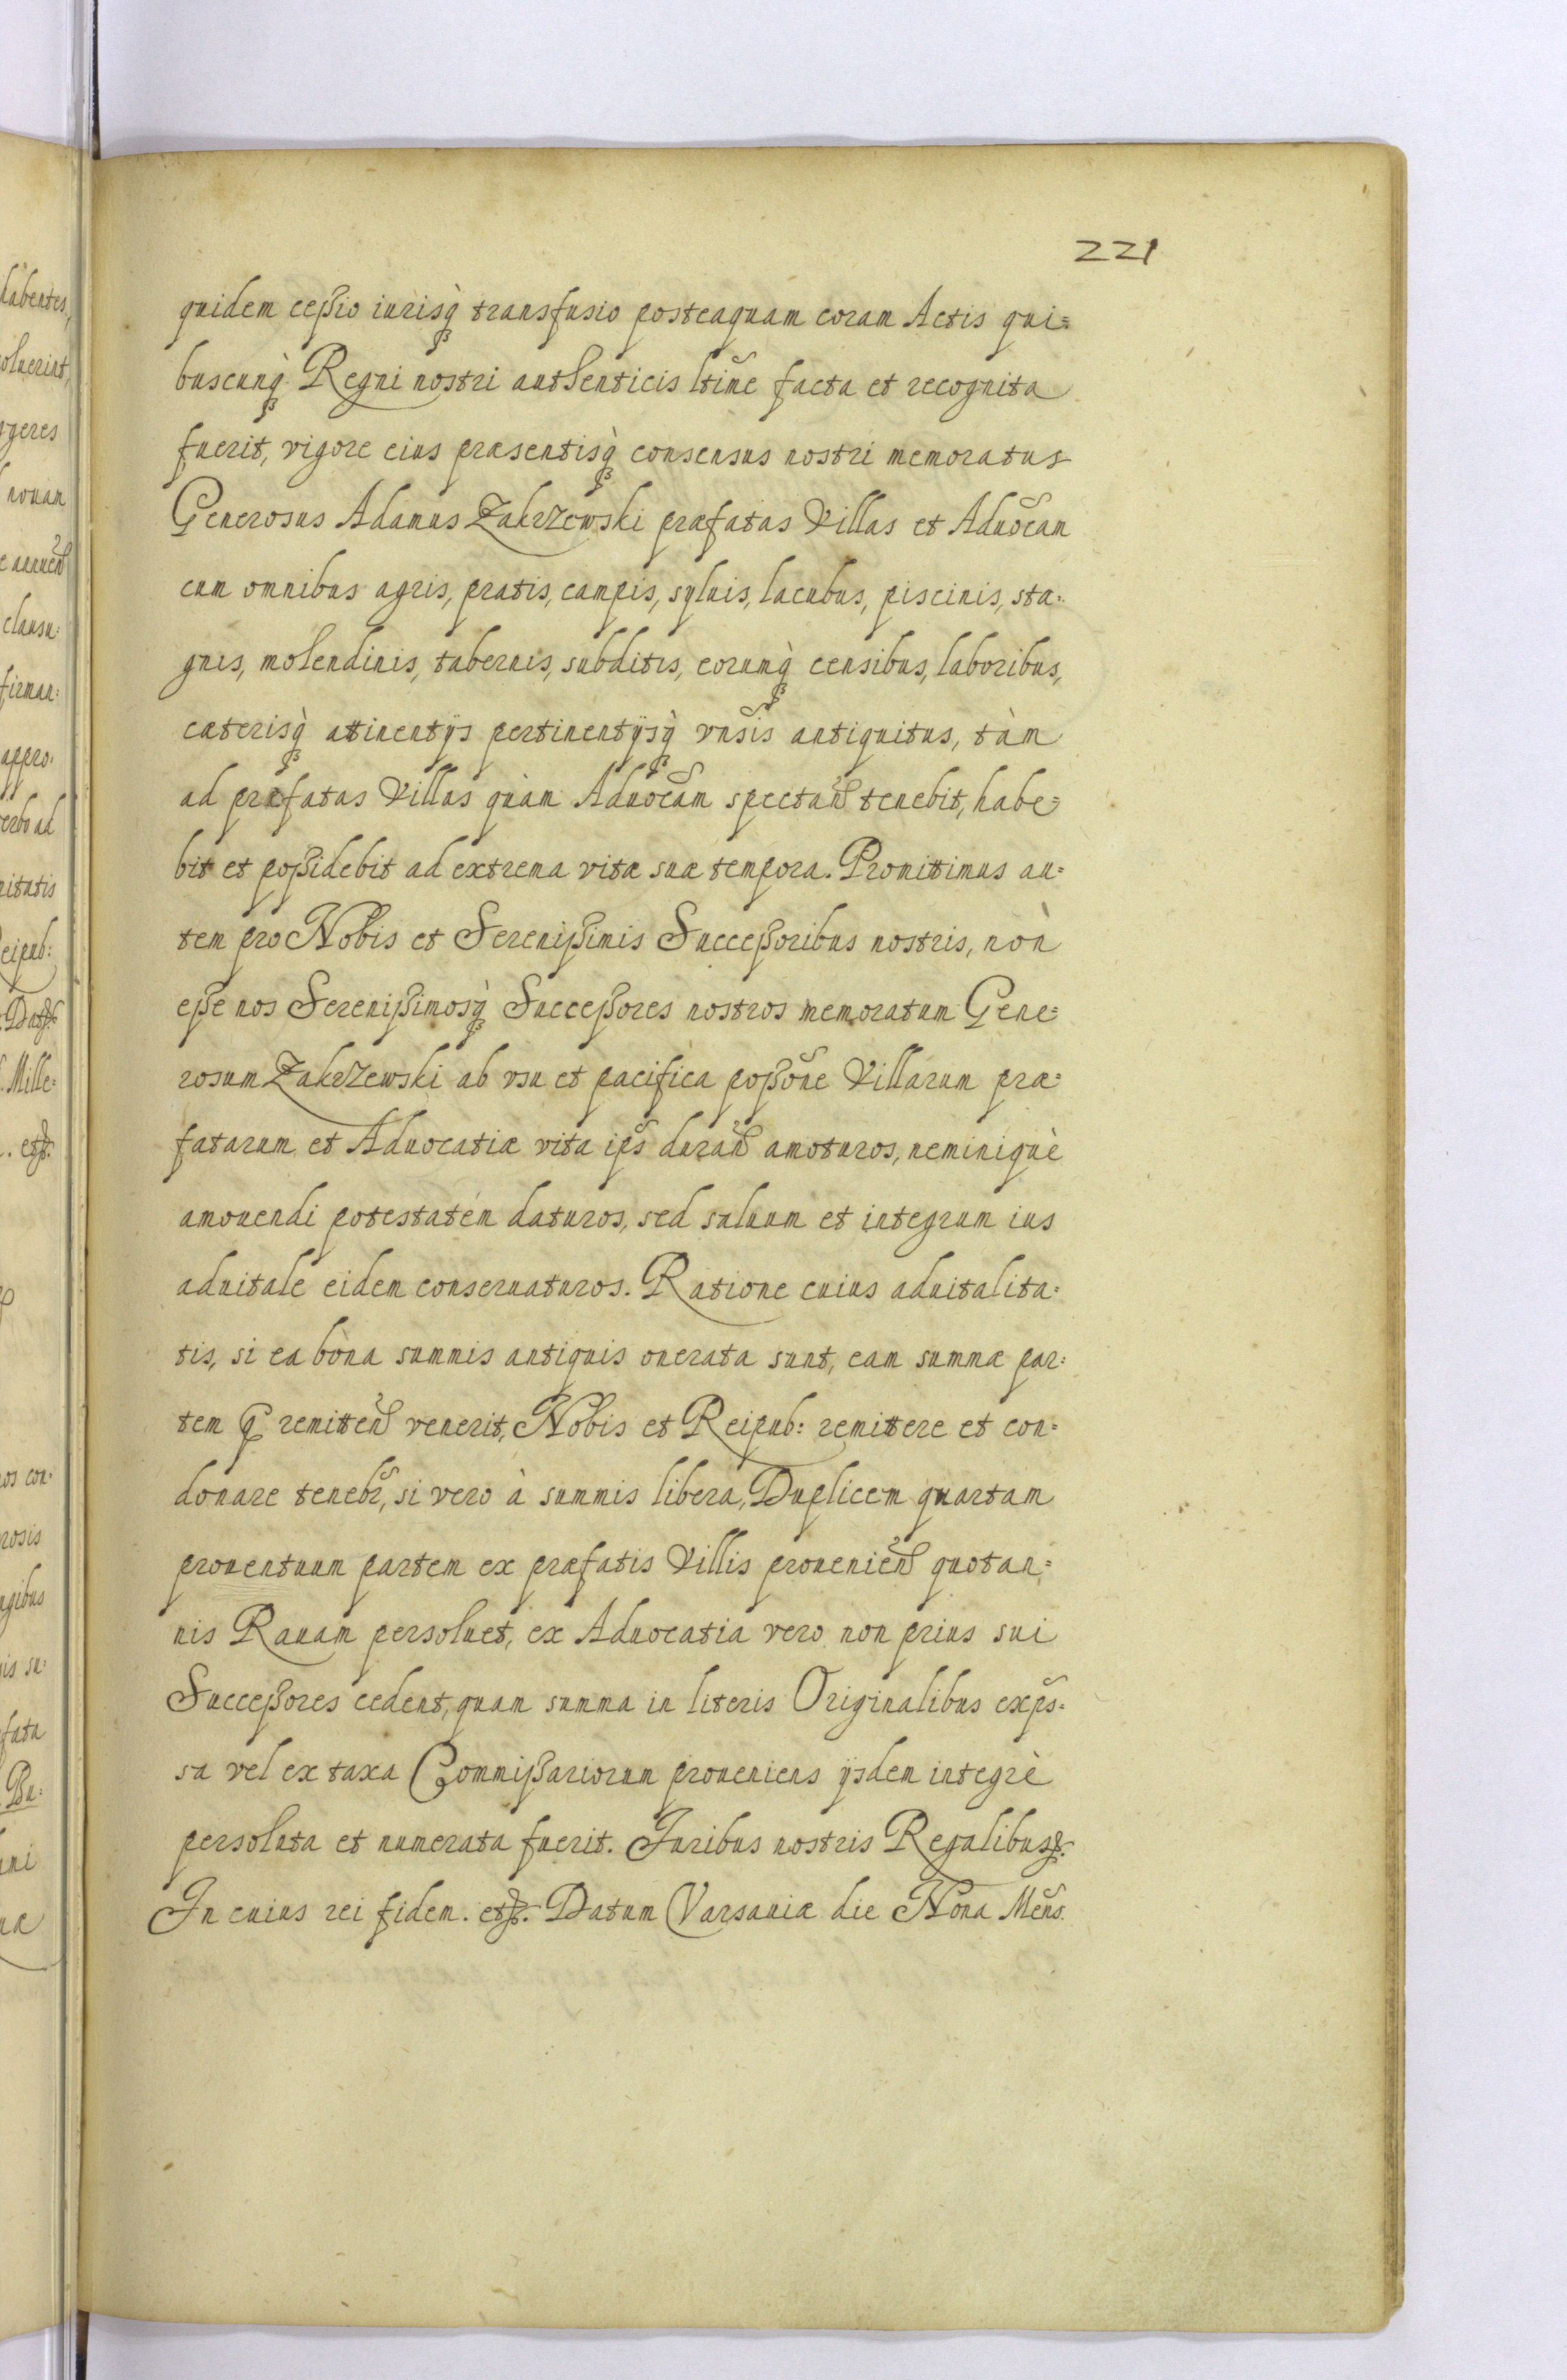 221
quidem ceßio iurisq̀ transfusio posteaquam coram Actis qui=
buscunq̀ Regni nostri authenticis ltime facta et recognita
fuerit, vigore eius præsentisq̀ consensus nostri memoratus
Generosus Adamus Zakrzewski præfatas Villas et Aduocam
cum omnibus agris, pratis, campis, syluis, lacubus, piscinis, sta=
gnis, molendinis, tabernis, subditis, eorunq̀ censibus, laboribus,
cæterisq̀ attinentijs pertinentijsq̀ vnsis antiquitus, tàm
ad præfatas Villas quàm Aduocam spectan tenebit, habe=
bit et poßidebit ad extrema vitæ suæ tempora. Promittimus au=
tem pro Nobis et Serenißimis Succeßoribus nostris, non
eße nos Serenißimosq̀ Succeßores nostros memoratum Gene=
rosum Zakrzewski ab vsu et pacifica poßone Villarum præ=
fatarum et Aduocatiæ vita ips duran amoturos, neminiquè
amouendi potestatem daturos, sed saluum et integrum ius
aduitale eidem conseruaturos. Ratione cuius aduitalita=
tis, si ea bona summis antiquis onerata sunt, eam summæ par=
tem q remitten venerit, Nobis et Reipub: remittere et con=
donare tenebr, si vero à summis libera, Duplicem quartam
prouentuum partem ex præfatis Villis prouenien quotan=
nis Rauam persoluet, ex Aduocatia vero non prius sui
Succeßores cedent, quam summa in literis Originalibus exps=
sa vel ex taxa Commißariorum proueniens ijsdem integrè
persoluta et numerata fuerit. Iuribus nostris Regalibus &.
In cuius rei fidem. etc. Datum Varsauiæ die Nona Mens.
habentes,
oluerint,
geres
nouam
e annuen
clausu:
firman:
appro:
erbo ad
nitatis
eipub:
Dat
Mille:
. etc.
os con:
rosis
gibus
is su:
fata